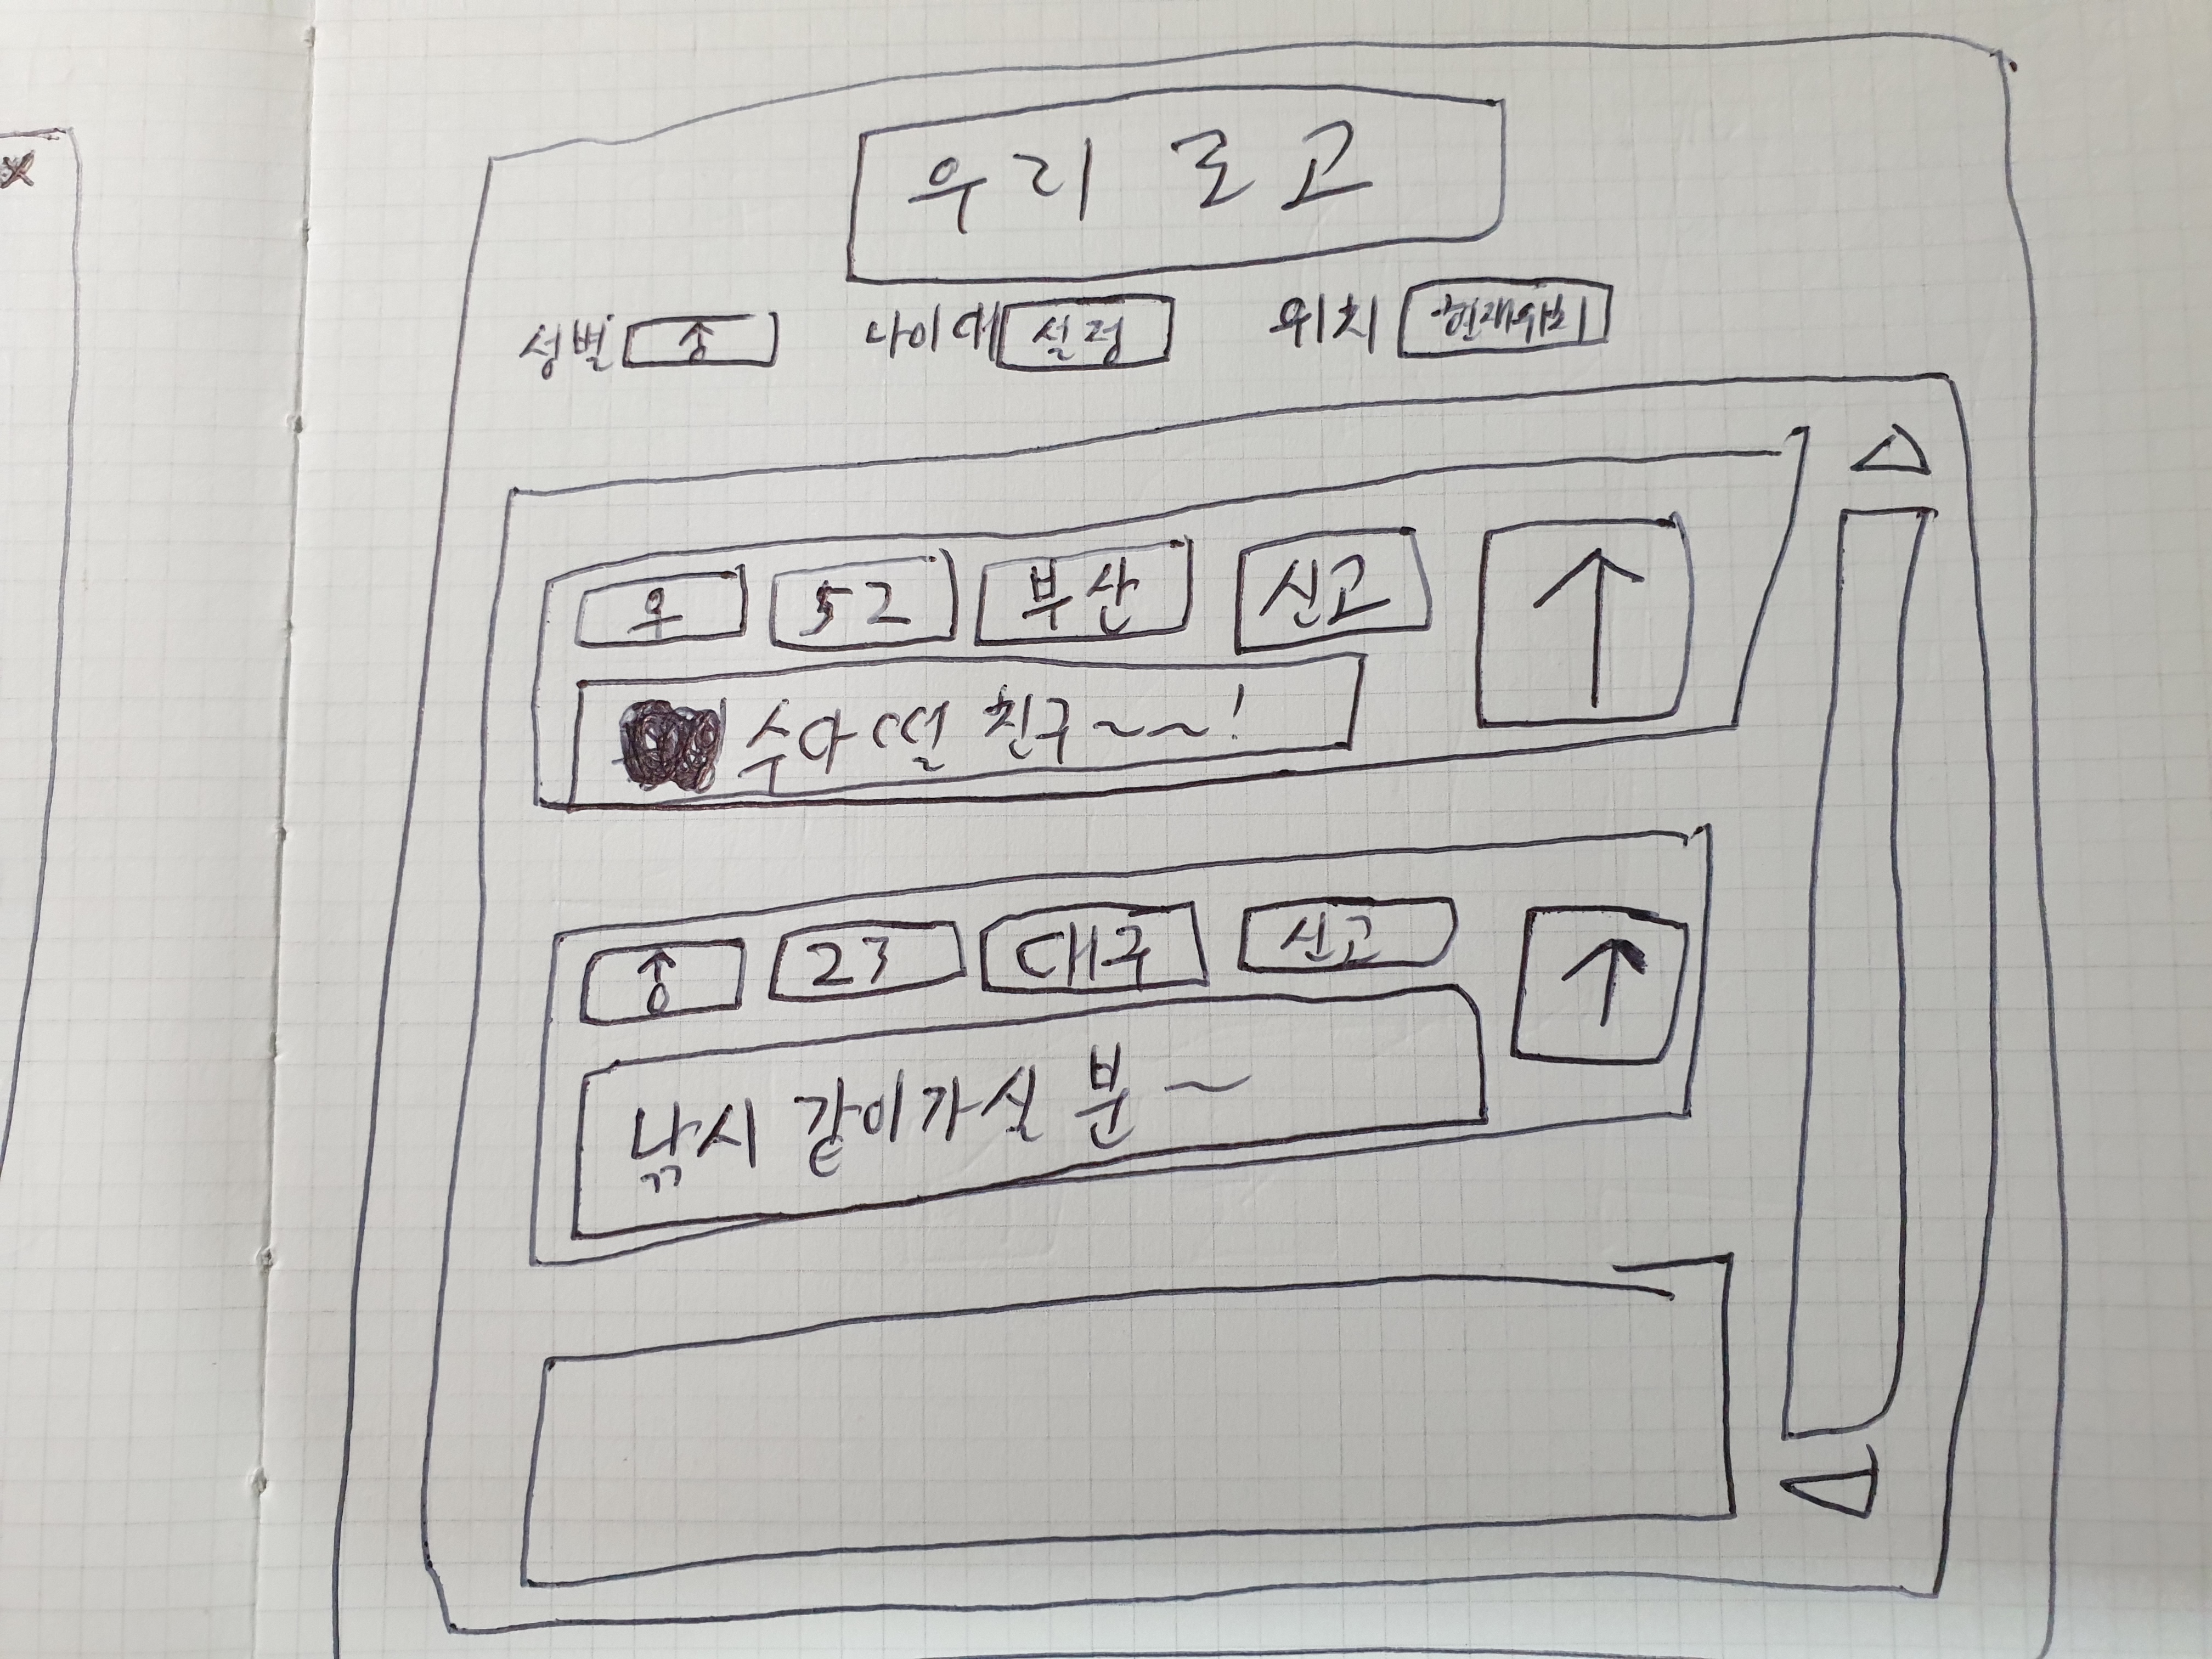 우리 로고
성별 ♂ 나이대 설정 위치 현재위치
♀ 52 부산 신고
수다 떨 친구~~!
♂ 23 대구 신고
낚시 같이가실 분~